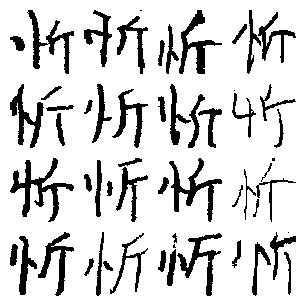 忻忻忻忻
忻忻忻忻
忻忻忻忻
忻忻忻忻